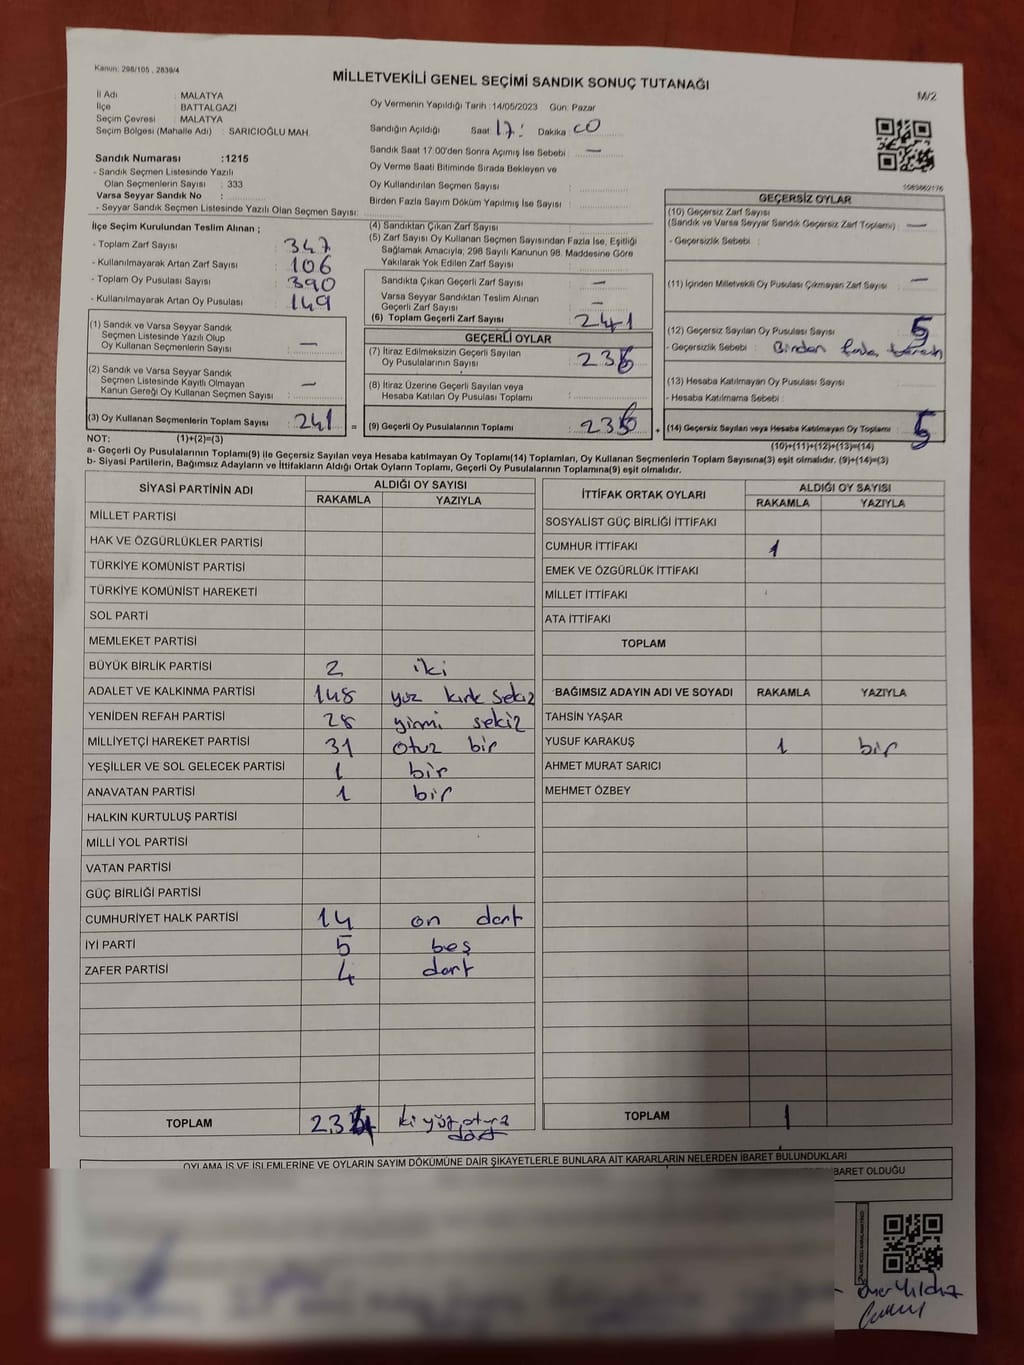 Kanun: 298/105 , 2839/4
MİLLETVEKİLİ GENEL SEÇİMİ SANDIK SONUÇ TUTANAĞI
M/2
İl Adı : MALATYA
İlçe : BATTALGAZİ
Seçim Çevresi : MALATYA
Seçim Bölgesi (Mahalle Adı) : SARICIOĞLU MAH.
Oy Vermenin Yapıldığı Tarih :14/05/2023 Gün: Pazar
Sandığın Açıldığı Saat 17: Dakika : 00
Sandık Saat 17:00'den Sonra Açımış İse Sebebi : —
Oy Verme Saati Bitiminde Sırada Bekleyen ve
Oy Kullandırılan Seçmen Sayısı :
Birden Fazla Sayım Döküm Yapılmış İse Sayısı :
Sandık Numarası :1215
- Sandık Seçmen Listesinde Yazılı
Olan Seçmenlerin Sayısı : 333
Varsa Seyyar Sandık No :
- Seyyar Sandık Seçmen Listesinde Yazılı Olan Seçmen Sayısı:
İlçe Seçim Kurulundan Teslim Alınan ;
- Toplam Zarf Sayısı : 347
- Kullanılmayarak Artan Zarf Sayısı : 106
- Toplam Oy Pusulası Sayısı : 390
- Kullanılmayarak Artan Oy Pusulası : 149
(1) Sandık ve Varsa Seyyar Sandık
Seçmen Listesinde Yazılı Olup
Oy Kullanan Seçmenlerin Sayısı : —
(2) Sandık ve Varsa Seyyar Sandık
Seçmen Listesinde Kayıtlı Olmayan
Kanun Gereği Oy Kullanan Seçmen Sayısı : —
(3) Oy Kullanan Seçmenlerin Toplam Sayısı : 241 =
(4) Sandıktan Çıkan Zarf Sayısı :
(5) Zarf Sayısı Oy Kullanan Seçmen Sayısından Fazla İse, Eşitliği
Sağlamak Amacıyla, 298 Sayılı Kanunun 98. Maddesine Göre
Yakılarak Yok Edilen Zarf Sayısı :
Sandıkta Çıkan Geçerli Zarf Sayısı : —
Varsa Seyyar Sandıktan Teslim Alınan
Geçerli Zarf Sayısı : —
(6) Toplam Geçerli Zarf Sayısı : 241
GEÇERLİ OYLAR
(7) İtiraz Edilmeksizin Geçerli Sayılan
Oy Pusulalarının Sayısı : 236
(8) İtiraz Üzerine Geçerli Sayılan veya
Hesaba Katılan Oy Pusulası Toplamı :
(9) Geçerli Oy Pusulalarının Toplamı : 236 +
1083662176
GEÇERSİZ OYLAR
(10) Geçersiz Zarf Sayısı
(Sandık ve Varsa Seyyar Sandık Geçersiz Zarf Toplamı) : —
- Geçersizlik Sebebi :
(11) İçinden Milletvekili Oy Pusulası Çıkmayan Zarf Sayısı : —
(12) Geçersiz Sayılan Oy Pusulası Sayısı : 5
- Geçersizlik Sebebi : Birden fazla
(13) Hesaba Katılmayan Oy Pusulası Sayısı :
- Hesaba Katılmama Sebebi :
(14) Geçersiz Sayılan veya Hesaba Katılmayan Oy Toplamı : 5
NOT: (1)+(2)=(3)
(10)+(11)+(12)+(13)=(14)
a- Geçerli Oy Pusulalarının Toplamı(9) ile Geçersiz Sayılan veya Hesaba katılmayan Oy Toplamı(14) Toplamları, Oy Kullanan Seçmenlerin Toplam Sayısına(3) eşit olmalıdır. (9)+(14)=(3)
b- Siyasi Partilerin, Bağımsız Adayların ve İttifakların Aldığı Ortak Oyların Toplamı, Geçerli Oy Pusulalarının Toplamına(9) eşit olmalıdır.
SİYASİ PARTİNİN ADI ALDIĞI OY SAYISI
RAKAMLA YAZIYLA
MİLLET PARTİSİ
HAK VE ÖZGÜRLÜKLER PARTİSİ
TÜRKİYE KOMÜNİST PARTİSİ
TÜRKİYE KOMÜNİST HAREKETİ
SOL PARTİ
MEMLEKET PARTİSİ
BÜYÜK BİRLİK PARTİSİ 2 iki
ADALET VE KALKINMA PARTİSİ 148 yüz kırk sekiz
YENİDEN REFAH PARTİSİ 28 yirmi sekiz
MİLLİYETÇİ HAREKET PARTİSİ 31 otuz bir
YEŞİLLER VE SOL GELECEK PARTİSİ 1 bir
ANAVATAN PARTİSİ 1 bir
HALKIN KURTULUŞ PARTİSİ
MİLLİ YOL PARTİSİ
VATAN PARTİSİ
GÜÇ BİRLİĞİ PARTİSİ
CUMHURİYET HALK PARTİSİ 14 on dört
İYİ PARTİ 5 beş
ZAFER PARTİSİ 4 dört
TOPLAM 234 iki yüz otuz
dört
İTTİFAK ORTAK OYLARI ALDIĞI OY SAYISI
RAKAMLA YAZIYLA
SOSYALİST GÜÇ BİRLİĞİ İTTİFAKI
CUMHUR İTTİFAKI 1
EMEK VE ÖZGÜRLÜK İTTİFAKI
MİLLET İTTİFAKI
ATA İTTİFAKI
TOPLAM
BAĞIMSIZ ADAYIN ADI VE SOYADI RAKAMLA YAZIYLA
TAHSİN YAŞAR
YUSUF KARAKUŞ 1 bir
AHMET MURAT SARICI
MEHMET ÖZBEY
TOPLAM 1
OYLAMA İŞ VE İŞLEMLERİNE VE OYLARIN SAYIM DÖKÜMÜNE DAİR ŞİKAYETLERLE BUNLARA AİT KARARLARIN NELERDEN İBARET BULUNDUKLARI
İBARET OLDUĞU